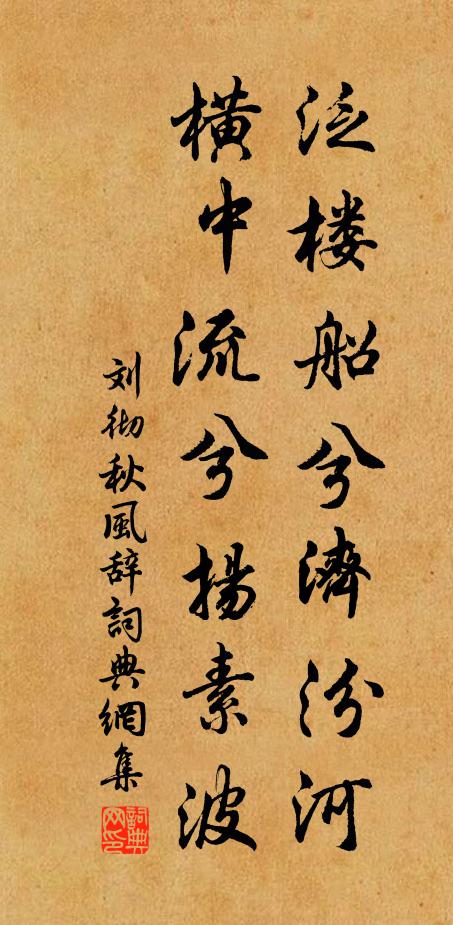 泛楼船兮濟汾河
横中流兮揚素波
刘彻秋風辞詞典網集
詞典网印